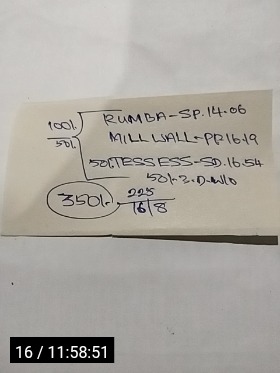 100% RUMBA-SP.14.06
50% MILLWALL-PP.16.19
50% TESSESS-SD.16.54
50%-3.D.W/O
350/- 225
16/8
16 / 11:58:51